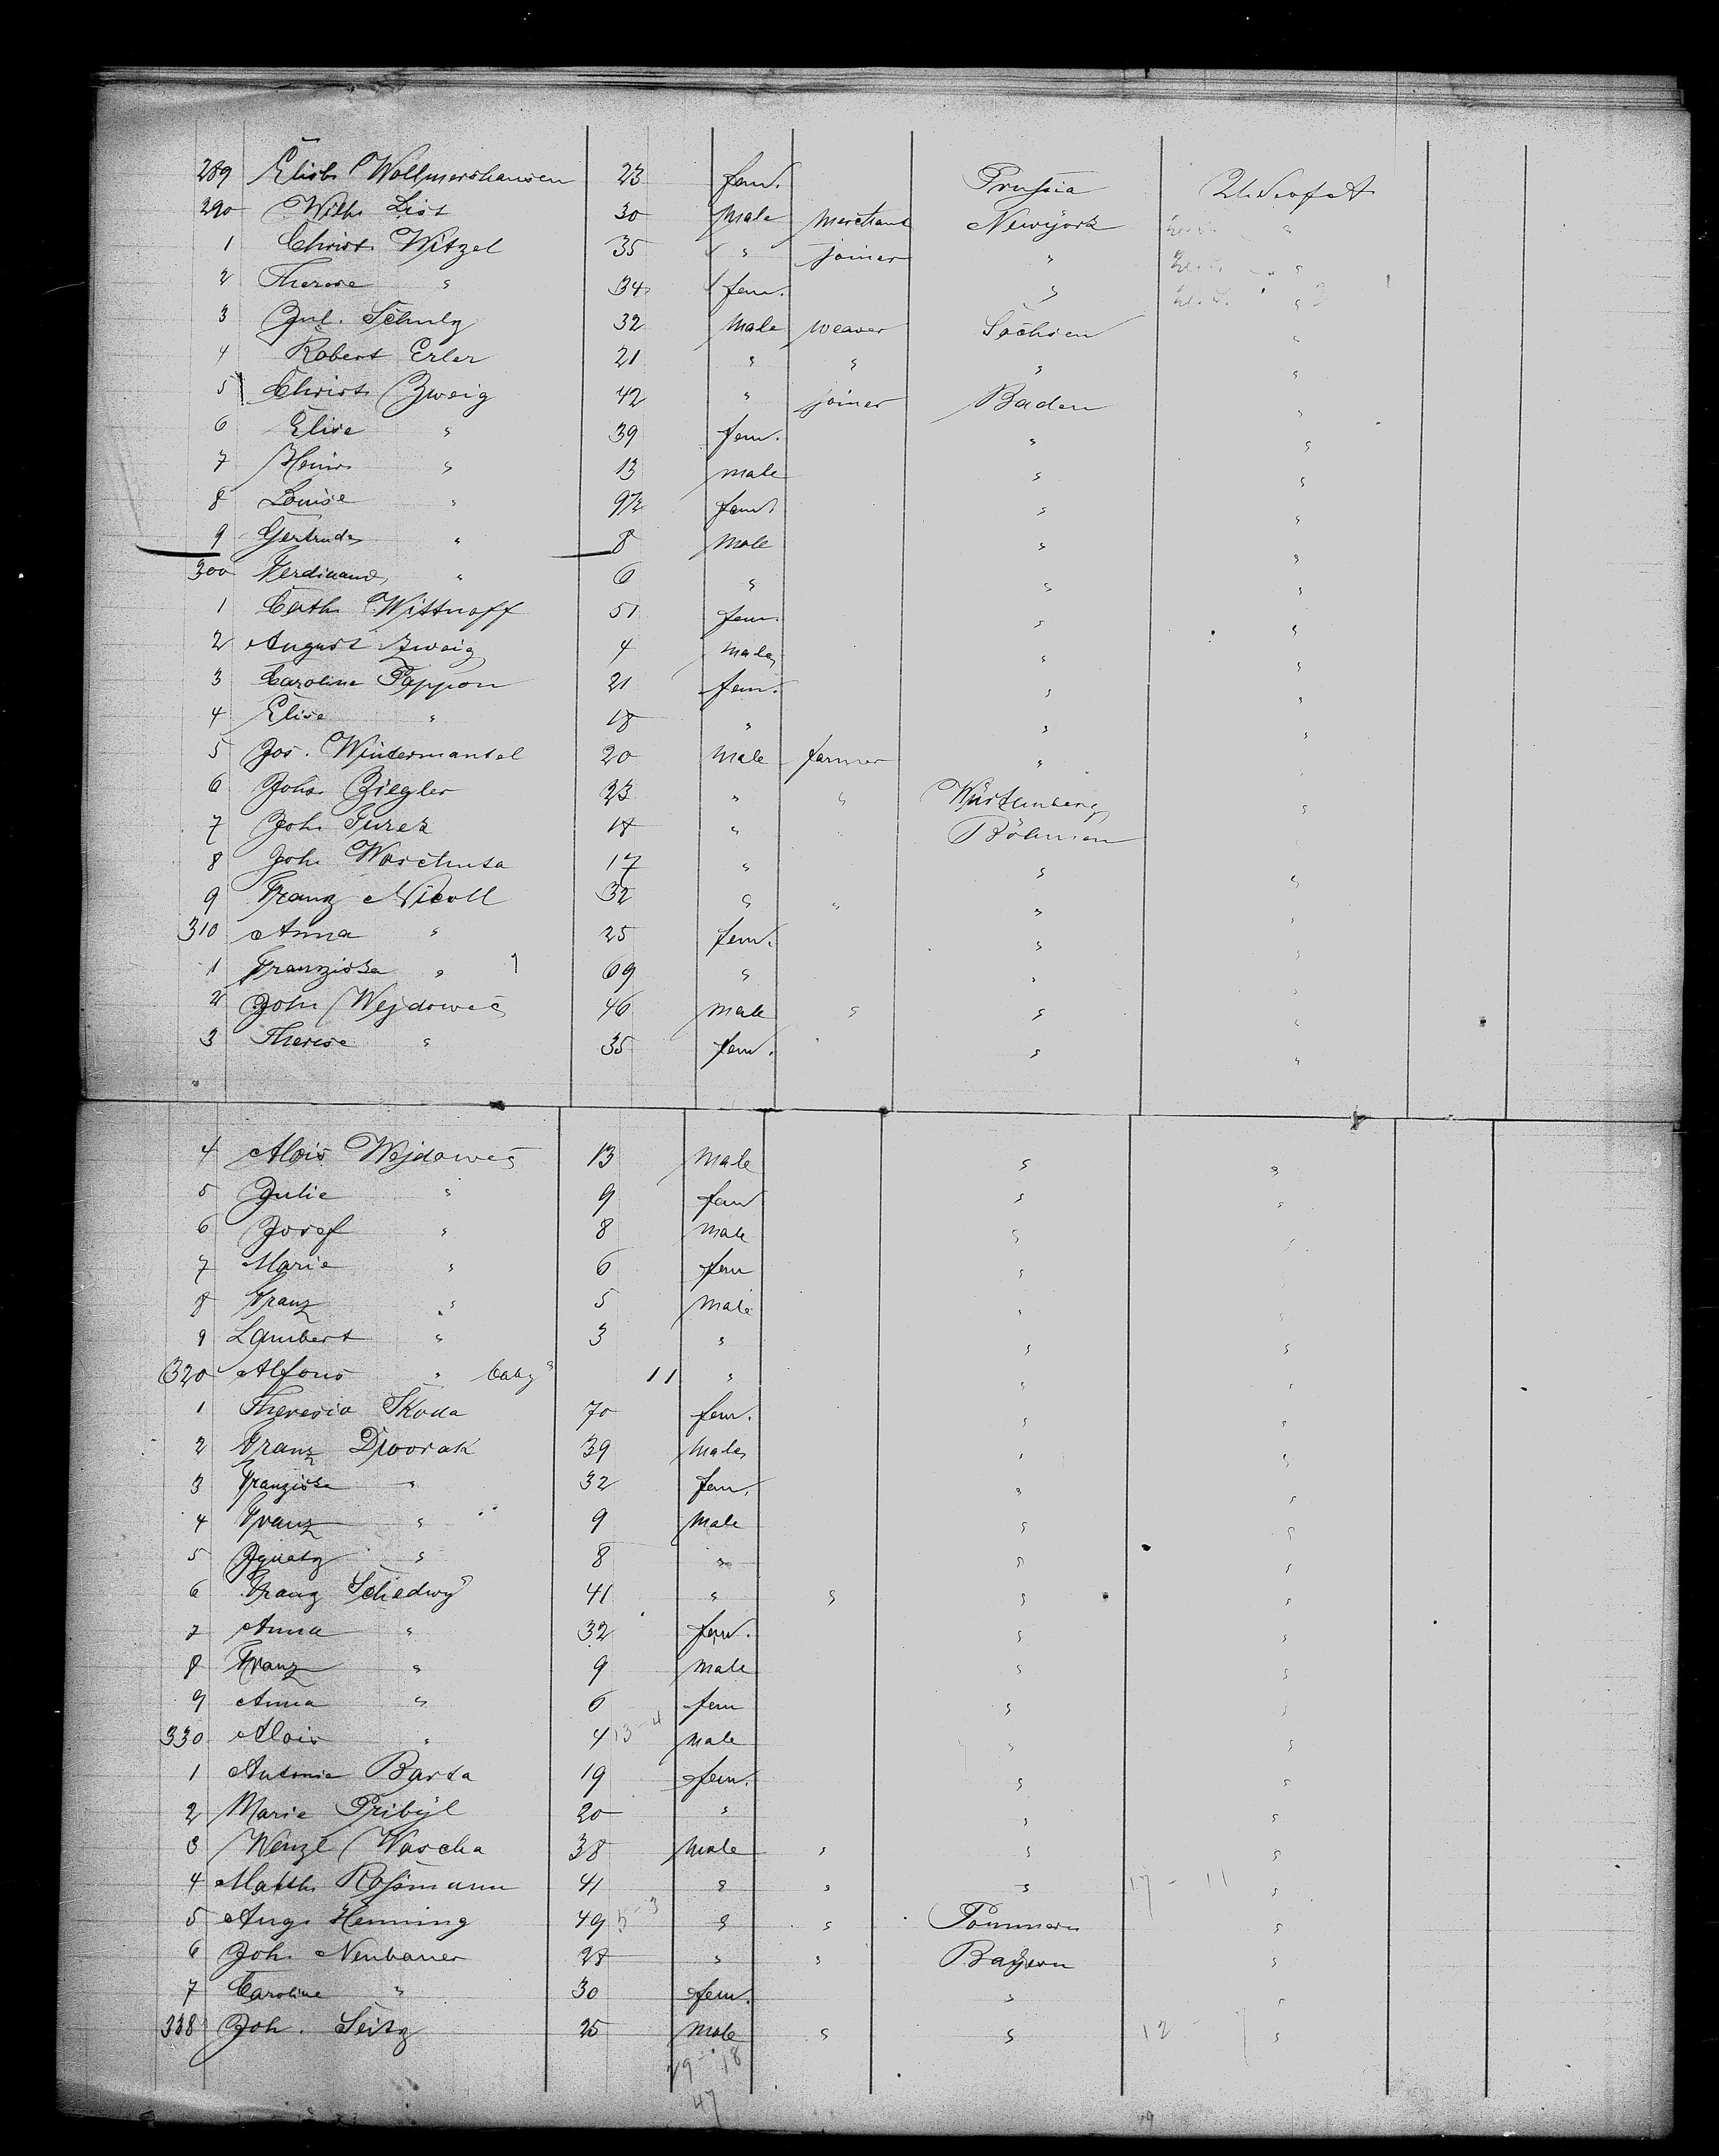 289 Elisb. Wollmershausen 23 fem. Prussia U. S. of A
290 Wilh. List 30 male merchant Newyork "
1 Christ. Witzel 35 " joiner " "
2 Therese " 34 fem. " "
3 Jul. Schulz 32 male weaver Sachsen "
4 Robert Erler 21 " " " "
5 Christ. Zweig 42 " joiner Baden "
6 Elise " 39 fem. " "
7 Heinr. " 13 male " "
8 Louise " 9½ fem. " "
9 Gertrude " 8 male " "
300 Ferdinand " 6 " " "
1 Cath. Wittnoff 51 fem. " "
2 August Zweig 4 male " "
3 Caroline Pappon 21 fem. " "
4 Elise " 18 " " "
5 Jos. Wintermantel 20 male farmer " "
6 Johs. Ziegler 23 " " Würtemberg "
7 Joh. Turek 18 " " Böhmen "
8 Joh. Waschuta 17 " " "
9 Franz Nicoll 32 " " " "
310 Anna " 25 fem. " "
1 Franziska " 69 " " "
2 John Wejdowec 46 male " " "
3 Therese " 35 fem. " "
4 Alois Wejdowec 13 male " "
5 Julie " 9 fem " "
6 Josef " 8 male " "
7 Marie " 6 fem " "
8 Franz " 5 male " "
9 Lambert " 3 " " "
320 Alfons " baby 11 " " "
1 Theresia Skoda 70 fem. " "
2 Franz Dworak 39 male " "
3 Franziska " 32 fem. " "
4 Franz " 9 male " "
5 Ignatz " 8 " " "
6 Franz Schedwy 41 " " " "
7 Anna " 32 fem. " "
8 Franz " 9 male " "
9 Anna " 6 fem " "
330 Alois " 4 13-4 male " "
1 Antonie Barta 19 fem. " "
2 Marie Pribyl 20 " " "
3 Wenzl Wascha 38 male " " "
4 Matth. Rossmann 41 " " " 17 - 11 "
5 Aug. Henning 49 5-3 " " Pommern "
6 Joh. Neubauer 28 " " Bayern "
7 Caroline " 30 fem. " "
338 Joh. Seitz 25 male " " 12 - 7 "
29-18
47